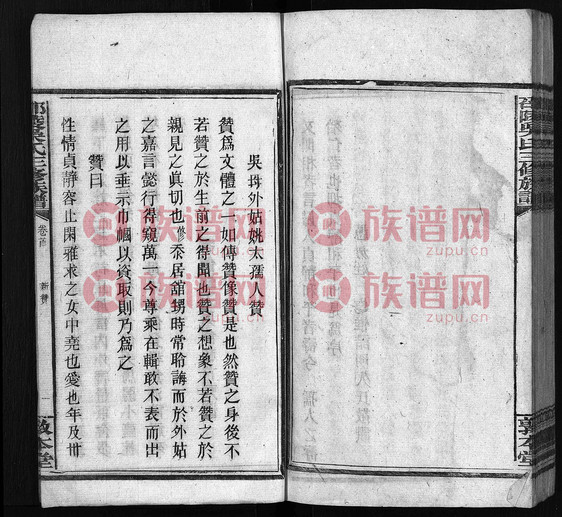 吳母外姑姚太孺人贊
贊為文體之一如傳贊像贊是也然贊之身後不
若贊之於生前之得聞也贊之想象不若贊之於
親見之真切也修忝居舘甥時常聆誨而於外姑
之嘉言懿行得窺萬一今尊乘在輯敢不表而出
之用以垂示巾幗以資取則乃為之
贊曰
性情貞静容止閑雅求之女中堯也愛也年及卅
邵陵吳氏三修族譜
卷首
新贊
敦本堂
邵陵吳氏三修族譜
敦本堂
族谱网
www.zupu.cn
族谱网
www.zupu.cn
族谱网
www.zupu.cn
族谱网
www.zupu.cn